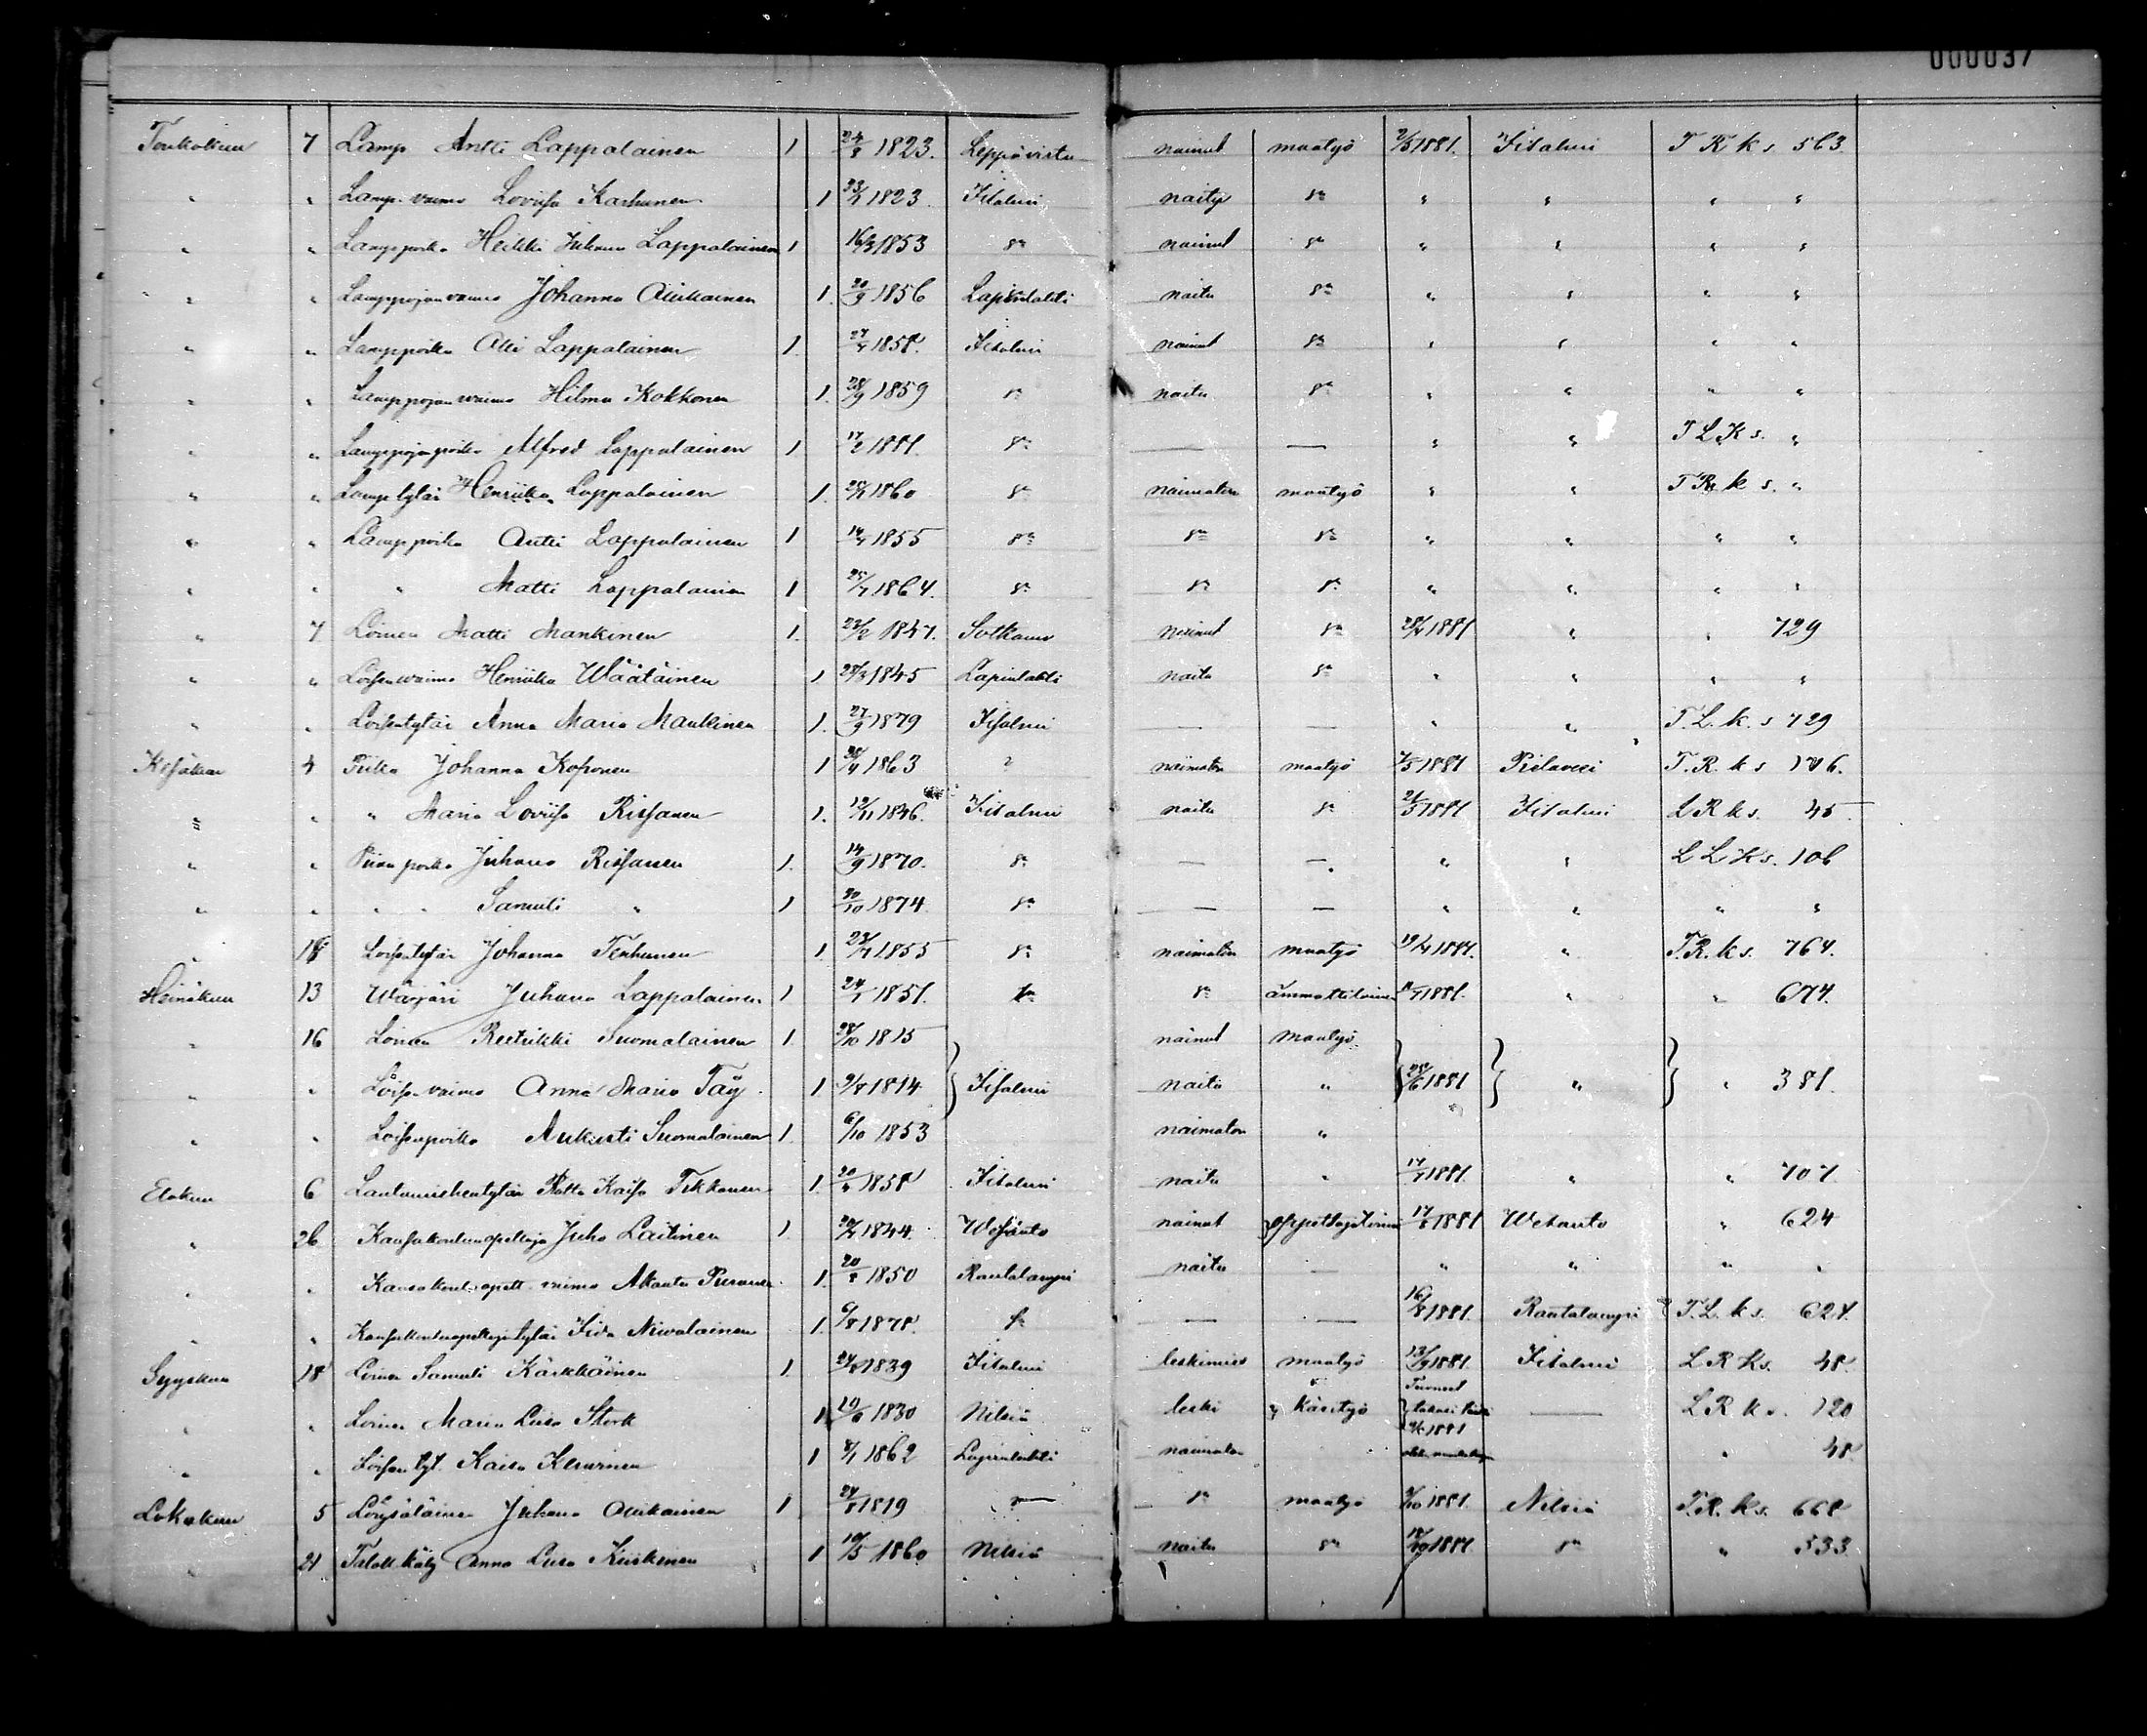 000037
Toukokuu 7 Lamp Antti Lappalainen 1 24/8 1823. Leppävirta nainut maatyö 2/5 1881. Iisalmi T R k s 563.
" " Lamp. vaimo Loviisa Karhunen 1 1823. Iisalmi naitu sn " " " "
" " Lamppoika Heikki Juhana Lappalainen 1 16/3 1853 sn nainut sn " " " "
" " Lamppojan vaimo Johanna Ollikainen 1. 20/9 1856 Lapinlahti naitu sn " " " "
" " Lamppoika Olli Lappalainen 1. 1858. Iisalmi nainut sn " " " "
" " Lamppojan vaimo Hilma Kokkonen 1. 28/9 1859 sn naitu sn " " " "
" " Lamppojanpoika Alfred Lappalainen 1 17/2 1881. sn — — " " T L K s. "
" " Lamp tytär Henriika Lappalainen 1. 1860 sn naimaton maatyö " " T R k s. "
" " Lamppoika Antti Lappalainen 1 1855 sn sn sn " " " "
" " " Matti Lappalainen 1 1864. sn sn sn " " " "
" 7 Loinen Matti Mankinen 1. 22/2 1847. Sotkamo nainut sn 1881 " " 729
" " Loisen vaimo Henriika Wäätäinen 1 28/3 1845 Lapinlahti naitu sn " " " "
" " Loisentytär Anna Maria Mankinen 1. 27/9 1879 Iisalmi — — " " T. L. k. s 729
Kesäkuu 4 Piika Johanna Koponen 1 1863 ? naimaton maatyö 1881 Pielavesi T. R. k s 176.
" " " Maria Loviisa Rissanen 1. 12/11 1846. Iisalmi naitu sn 21/5 1881 Iisalmi L R k s. 45
" " Piian poika Juhana Rissanen 1. 14/9 1870. sn — — " " L L K s. 106
" " " " Samuli " 1 30/10 1874. sn — — " " " "
" 18 Loisentytär Johanna Tenhunen 1. 1855 sn naimaton maatyö 1881. " T. R. k s. 764.
Heinäkuu 13 Wärjäri Juhana Lappalainen 1 1851. sn sn ammattilainen 1881. " " 674.
" 16 Loinen Reetrikki Suomalainen 1. 28/10 1815 nainut maatyö
" " Lois. vaimo Anna Maria Täy 1. 9/8 1814 Iisalmi naitu " 1881 " " 381.
" " Loisenpoika Aukusti Suomalainen 1. 6/10 1853 naimaton "
Elokuu 6 Lautamiehentytär Riitta Kaisa Tikkanen 1. 20/4 1858 Iisalmi naitu " 1881. " " 707
" 26 Kansakoulunopettaja Juho Laitinen 1. 1844. Wesanto nainut opettajatoimi 17/8 1881 Wesanto " 624
" " Kansakoul. opett. vaimo Akaata Piironen 1. 20/8 1850 Rautalampi naitu — " " " "
" " Kansakoulunopettajantytär Iida Niiralainen 1. 6/8 1878. sn — — 16/8 1881. Rautalampi T. L. k s. 624.
Syyskuu 18 Loinen Samuli Kärkkäinen 1. 1839 Iisalmi leskimies maatyö 13/9 1881. Iisalmi L R K s. 48.
" " Loinen Maria Liisa Stork 1 1830 Nilsiä leski " käsityö 1881 — L R k s. 120
" " Loisen tyt. Kaisa Keurinen 1 1862 Lapinlahti naimaton " 48
Lokakuu 5 Löysäläinen Juhana Ollikainen 1 1819 — sn maatyö 1881. Nilsiä T. R. k s. 668
" 21 Taloll. käly Anna Liisa Kiiskinen 1 10/5 1860 Nilsiä naitu sn 1881. sn " 533